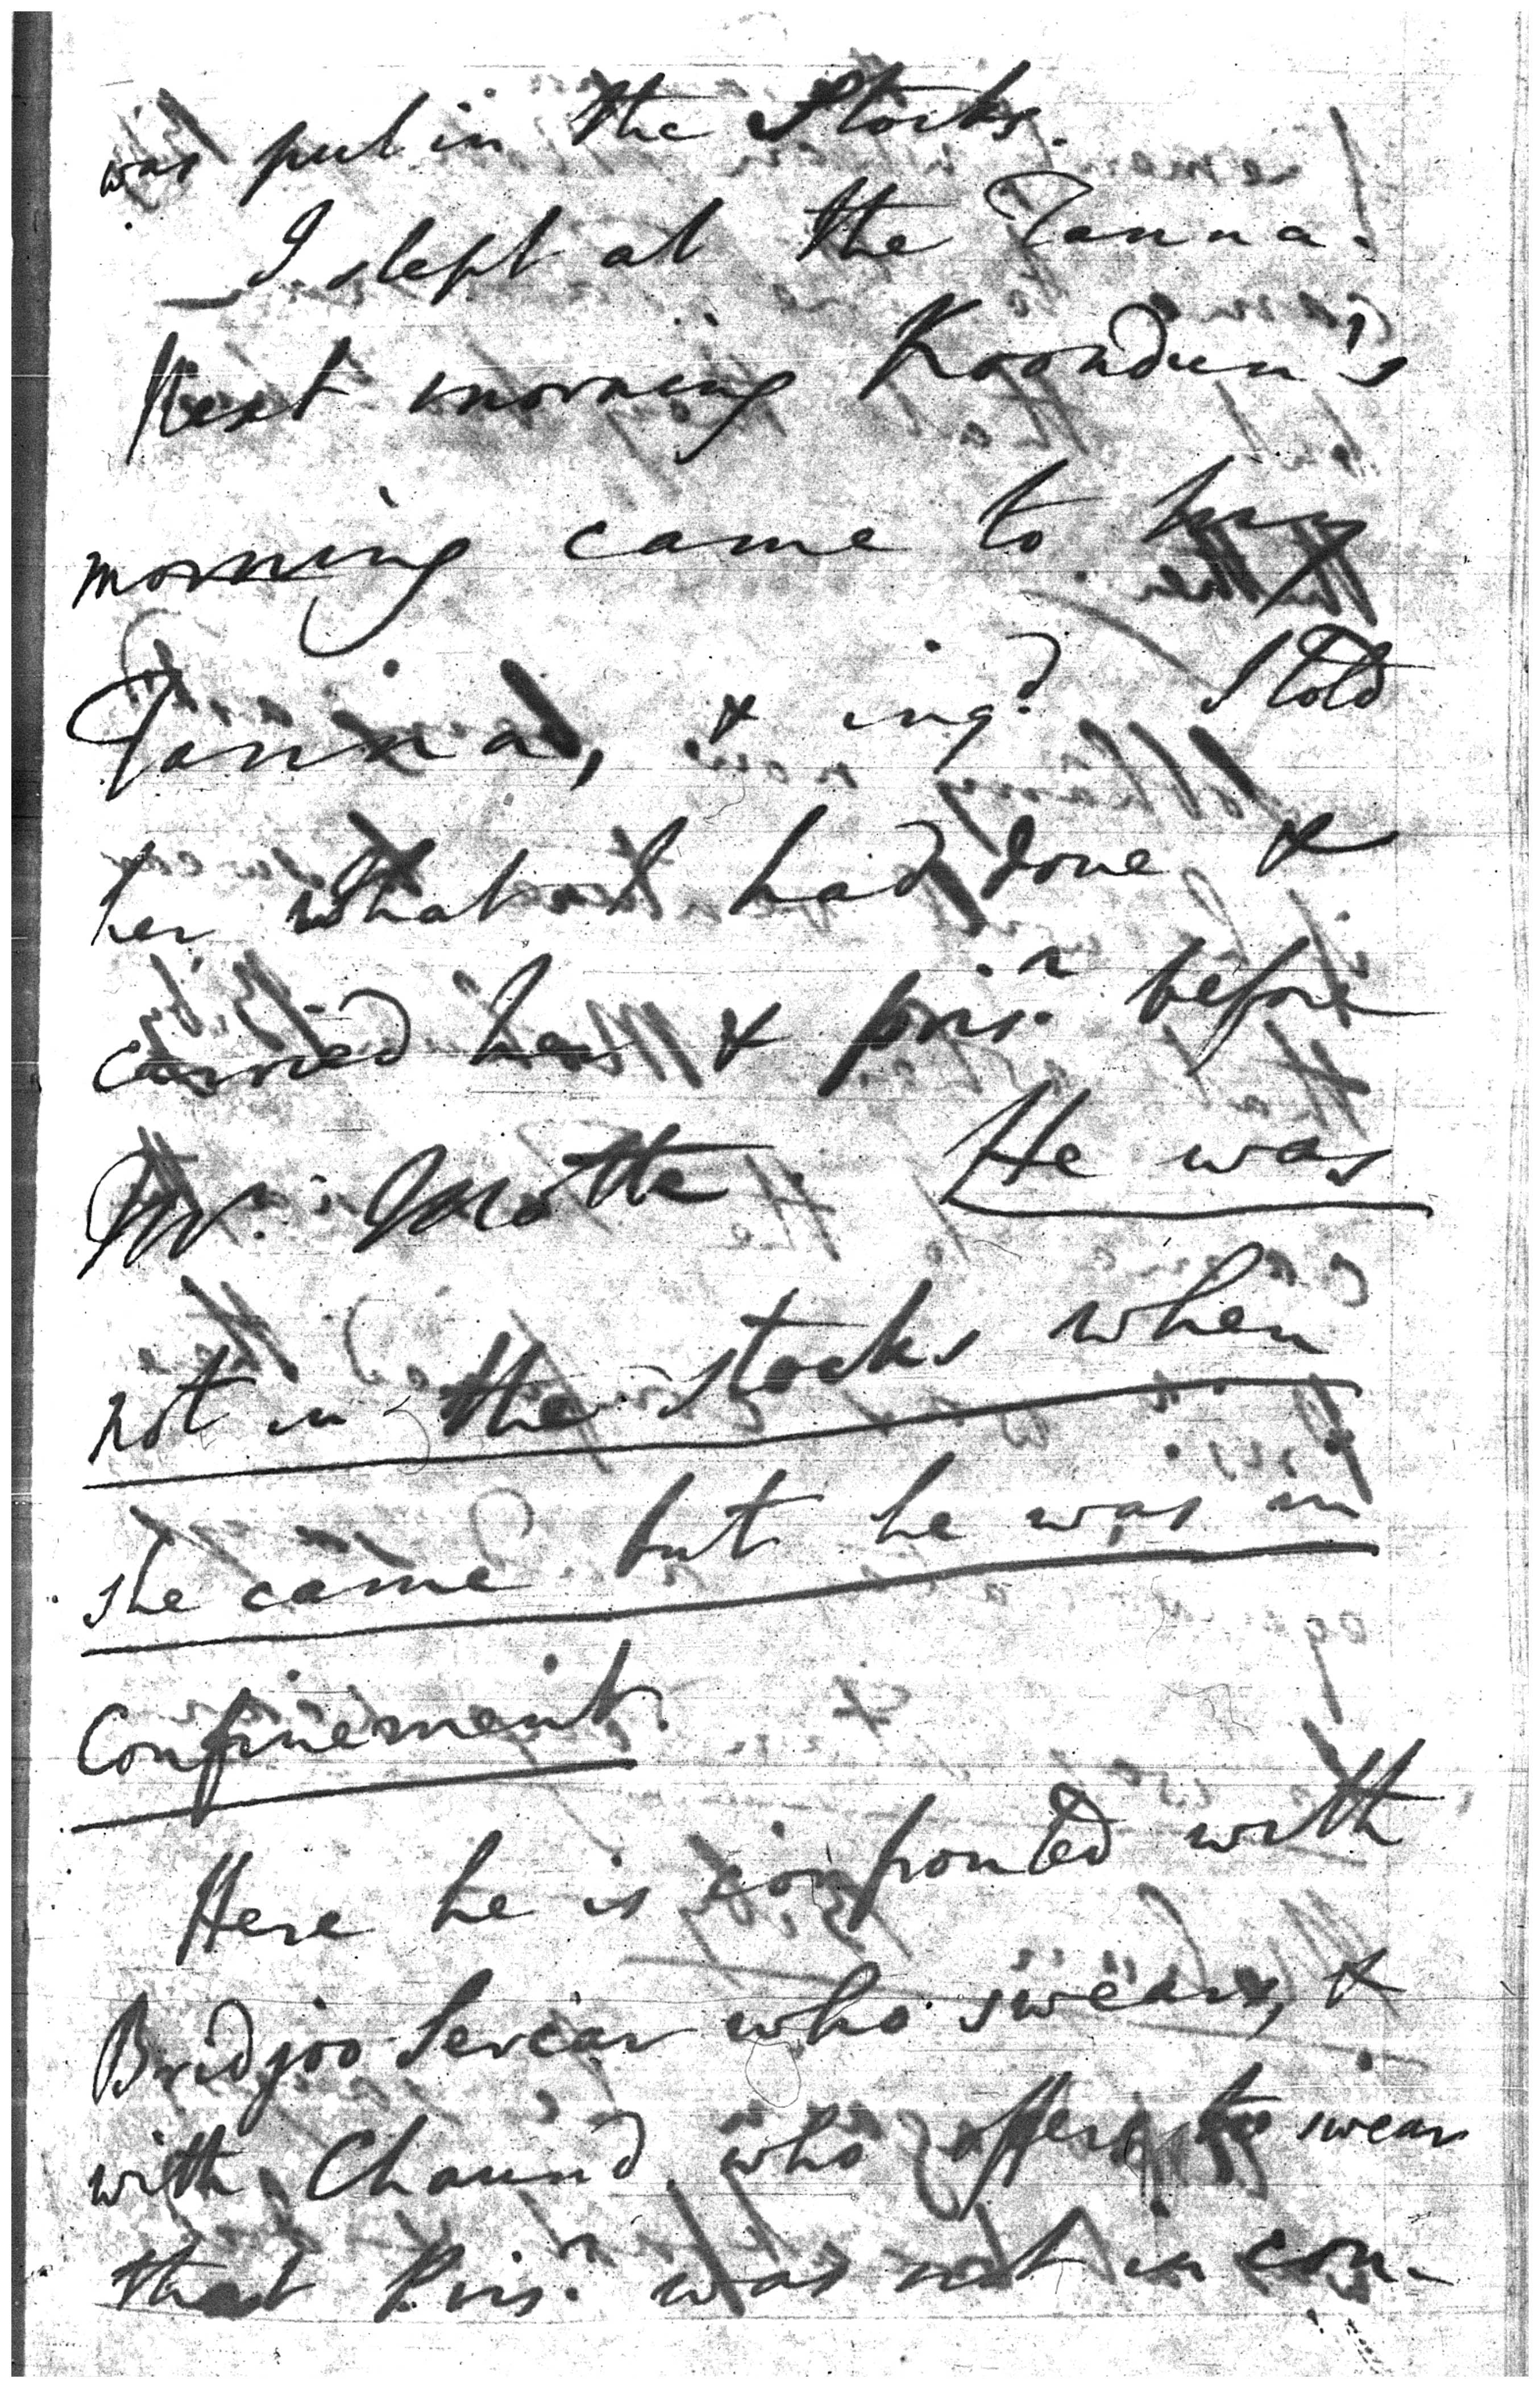 was put in the Stocks.
I slept at the Tanna.
Next morning Koondun's
morning came to
Tanna, & inqd. I told
her what I had done &
carried her & prisr. before
Mr. Motte He was
not in the stocks when
she came but he was in
Confinement.
Here he is confronted with
Bridjoo Sercar who swears, &
with Chaund who offers to swear
that Prisr. was not in con-